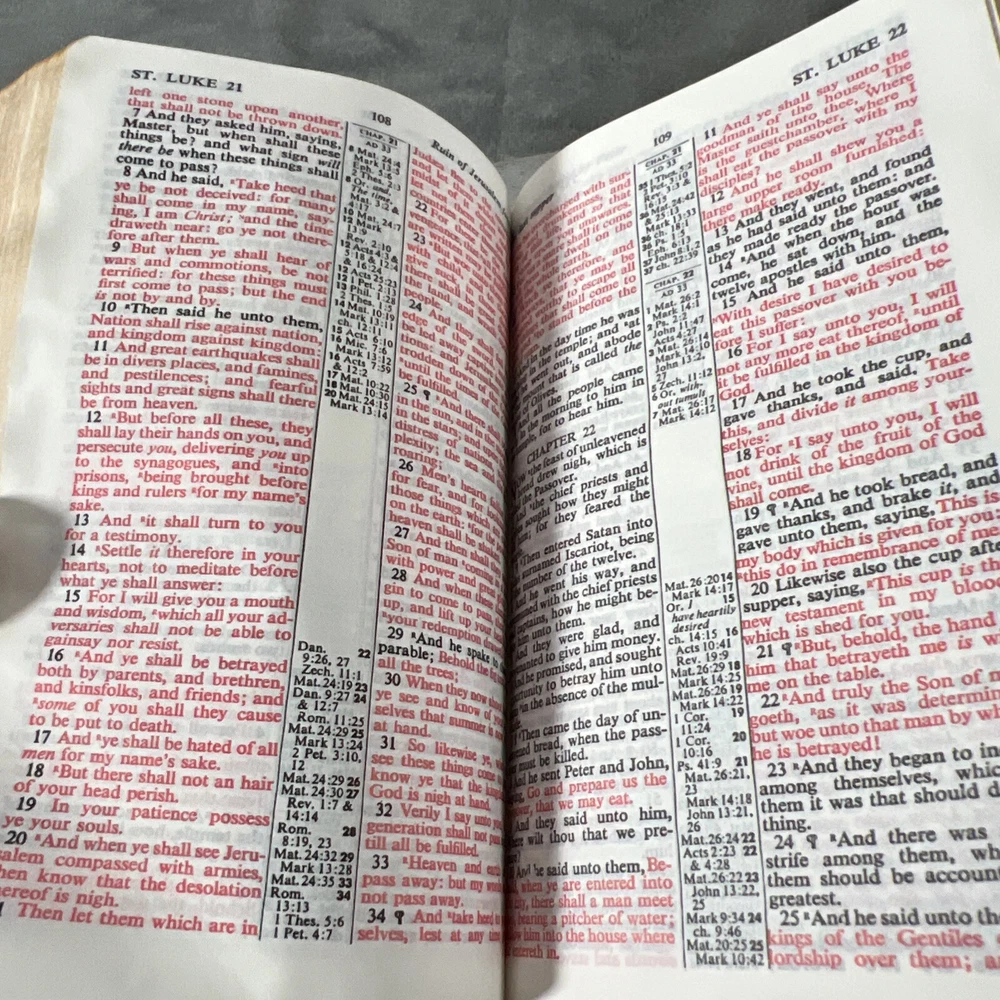 ST. LUKE 21
108
Ruin of Jerusalem
left one stone upon another,
that shall not be thrown down.
7 And they asked him, saying,
Master, but when shall these
things be? and what sign will
there be when these things shall
come to pass?
8 And he said, Take heed that
ye be not deceived: for many
shall come in my name, say-
ing, I am Christ; and the time
draweth near: go ye not there-
fore after them.
9 But when ye shall hear of
wars and commotions, be not
terrified: for these things must
first come to pass; but the end
is not by and by.
10 Then said he unto them,
Nation shall rise against nation,
and kingdom against kingdom:
11 And great earthquakes shall
be in divers places, and famines,
and pestilences; and fearful
sights and great signs shall there
be from heaven.
12 But before all these, they
shall lay their hands on you, and
persecute you, delivering you up
to the synagogues, and into
prisons, being brought before
kings and rulers for my name's
sake.
13 And it shall turn to you
for a testimony.
14 Settle it therefore in your
hearts, not to meditate before
what ye shall answer:
15 For I will give you a mouth
and wisdom, which all your ad-
versaries shall not be able to
gainsay nor resist.
16 And ye shall be betrayed
both by parents, and brethren,
and kinsfolks, and friends; and
some of you shall they cause
to be put to death.
17 And ye shall be hated of all
men for my name's sake.
18 But there shall not an hair
of your head perish.
19 In your patience possess
ye your souls.
20 And when ye shall see Jeru-
salem compassed with armies,
then know that the desolation
thereof is nigh.
Then let them which are in
CHAP. 21
AD 33
8 Mat. 24:4
Mark 13:5
Eph. 5:6
2 Thes. 2:3
8 Or, and,
The time,
Mat. 3:2 &
4:17
10 Mat. 24:7
12 Mark
13:9
Rev. 2:10
12 Acts 4:3 &
5:18 & 12:4
& 16:24
12 Acts 25:23
12 1 Pet. 2:13
13 Phil. 1:28
2 Thes. 1:5
14 Mat. 10:19
Mark 13:11
ch. 12:11
15 Acts 6:10
16 Mic. 7:6
Mark 13:12
16 Acts 7:59
& 12:2
17 Mat. 10:22
18 Mat. 10:30
20 Mat. 24:15
Mark 13:14
Dan. 22
9:26, 27
Zech. 11:1
Mat. 24:19 23
Dan. 9:27 24
& 12:7
Rom. 11:25
Mat. 24:29 25
Mark 13:24
2 Pet. 3:10,
12
Mat. 24:29 26
Mat. 24:30 27
Rev. 1:7 &
14:14
Rom. 28
8:19, 23
Mat. 24:32 29
Mark 13:28
Mat. 24:35 33
Rom. 34
13:13
1 Thes. 5:6
1 Pet. 4:7
22 For these
are written
23
with child,
give suck,
shall be
the land,
people.
24 And they
edge of the
be led away
tions: and Jerusalem
trodden down of
until the times of
be fulfilled.
25 ¶ And there
in the sun, and in the
in the stars; and upon
distress of nations,
plexity; the sea and
roaring;
26 Men's hearts
for fear, and for looking
those things which are
on the earth: for the
heaven shall be shaken.
27 And then shall
Son of man coming
with power and great
28 And when these
gin to come to pass,
up, and lift up your
your redemption draweth
29 And he spake to
parable; Behold the fig
all the trees;
30 When they now
ye see and know of your
selves that summer is
at hand.
31 So likewise ye,
see these things come
know ye that the kingdom
God is nigh at hand.
32 Verily I say unto you
generation shall not pass
till all be fulfilled.
33 Heaven and earth
pass away: but my words
not pass away.
34 ¶ And take heed to
selves, lest at any time
109
ST. LUKE 22
charged with sur-
drunkenness, and
and so that
shall it come
dwell on the
earth.
therefore, and
worthy to escape
all come to
stand before the
in the day time he was
the temple; and at
went out, and abode
that is called the
Olives.
and all the people came
the morning to him in
temple, for to hear him.
CHAPTER 22
the feast of unleavened
bread drew nigh, which is
the Passover.
the chief priests and
sought how they might
him; for they feared the
Then entered Satan into
surnamed Iscariot, being
number of the twelve.
he went his way, and
with the chief priests
captains, how he might be-
him unto them.
they were glad, and
to give him money.
he promised, and sought
opportunity to betray him unto
in the absence of the mul-
Then came the day of un-
leavened bread, when the pass-
must be killed.
he sent Peter and John,
Go and prepare us the
passover, that we may eat.
And they said unto him,
Where wilt thou that we pre-
And he said unto them, Be-
when ye are entered into
city, there shall a man meet
bearing a pitcher of water;
him into the house where
entereth in.
CHAP. 21
AD 33
CHAP. 22
AD 33
1 Mat. 26:2
Mark 14:1
2 Ps. 2:2
John 11:47
Acts 4:27
3 Mat. 26:14
Mark 14:10
John 13:2,
27
5 Zech. 11:12
6 Or, with-
out tumult
7 Mat. 26:17
Mark 14:12
Mat. 26:20 14
Mark 14:17
Or, I 15
have heartily
desired
ch. 14:15 16
Acts 10:41
Rev. 19:9
Mat. 26:29 18
Mark 14:25
Mat. 26:26 19
Mark 14:22
1 Cor. 19
11:24
1 Cor. 20
10:16
Ps. 41:9 21
Mat. 26:21,
23
Mark 14:18
John 13:21,
26
Mat. 26:24 22
Acts 2:23 22
& 4:28
Mat. 26:22 23
John 13:22,
25
Mark 9:34 24
ch. 9:46
Mat. 20:25 25
Mark 10:42
11 And ye shall say unto the
goodman of the house, The
Master saith unto thee, Where
is the guestchamber, where I
shall eat the passover with my
disciples?
12 And he shall shew you a
large upper room furnished:
there make ready.
13 And they went, and found
as he had said unto them: and
they made ready the passover.
14 And when the hour was
come, he sat down, and the
twelve apostles with him.
15 And he said unto them,
With desire I have desired to
eat this passover with you be-
fore I suffer:
16 For I say unto you, I will
not any more eat thereof, until
it be fulfilled in the kingdom of
God.
17 And he took the cup, and
gave thanks, and said, Take
this, and divide it among your-
selves:
18 For I say unto you, I will
not drink of the fruit of the
vine, until the kingdom of God
shall come.
19 ¶ And he took bread, and
gave thanks, and brake it, and
gave unto them, saying, This is
my body which is given for you:
this do in remembrance of me.
20 Likewise also the cup after
supper, saying, This cup is the
new testament in my blood,
which is shed for you.
21 ¶ But, behold, the hand
him that betrayeth me is w
me on the table.
22 And truly the Son of m
goeth, as it was determin
but woe unto that man by wh
he is betrayed!
23 And they began to in
among themselves, whic
them it was that should d
thing.
24 ¶ And there was
strife among them, wh
them should be account
greatest.
25 And he said unto th
kings of the Gentiles
lordship over them; a